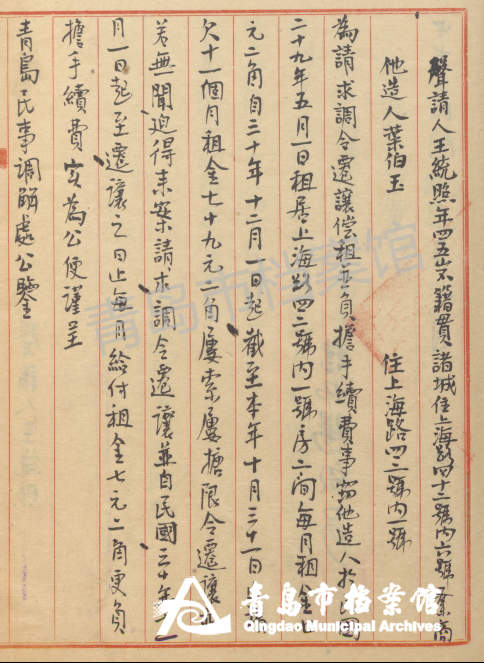 聲請人王統照年四五岁籍貫諸城住上海路四十二號內六號業商
他造人葉伯玉　住上海路四二號內一號
為請求調令遷讓偿租並負擔手續費事窃他造人於民國
二十九年五月一日租居上海路四二號內一號房二間每月租金七
元二角自三十年十二月一日起截至本年十月三十一日止
欠十一個月租金七十九元二角屢索屢搪限令遷讓
若無聞迫得来案請求調令遷讓並自民國三十年十二
月一日起至遷讓之日止每月給付租金七元二角更負
擔手續費实為公便謹呈
青島民事調解處公鑒
青島市档案馆
青島市档案馆
Qingdao Municipal Archives